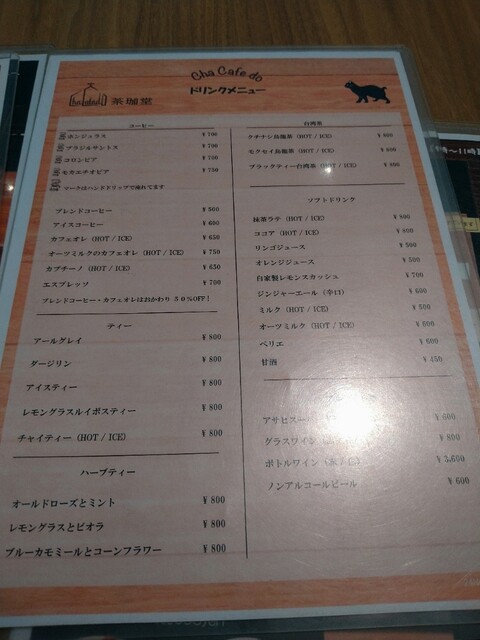 Cha Cafe do
ドリンクメニュー
茶珈堂
コーヒー
ホンジュラス ￥700
ブラジルサントス ￥750
コロンビア ￥750
モカエチオピア ￥750
マークはハンドドリップで淹れてます
ブレンドコーヒー ￥500
アイスコーヒー ￥600
カフェオレ (HOT / ICE) ￥650
オーツミルクのカフェオレ (HOT / ICE) ￥750
カプチーノ (HOT / ICE) ￥650
エスプレッソ ￥700
ブレンドコーヒー・カフェオレはおかわり 50%OFF!
ティー
アールグレイ ￥800
ダージリン ￥800
アイスティー ￥800
レモングラスルイボスティー ￥800
チャイティー (HOT / ICE) ￥800
ハーブティー
オールドローズとミント ￥800
レモングラスとビオラ ￥800
ブルーカモミールとコーンフラワー ￥800
台湾茶
クチナシ烏龍茶 (HOT / ICE) ￥800
モクセイ烏龍茶 (HOT / ICE) ￥800
ブラックティー台湾茶 (HOT / ICE) ￥800
ソフトドリンク
抹茶ラテ (HOT / ICE) ￥800
ココア (HOT / ICE) ￥800
リンゴジュース ￥500
オレンジジュース ￥500
自家製レモンスカッシュ ￥700
ジンジャーエール (辛口) ￥600
ミルク (HOT / ICE) ￥500
オーツミルク (HOT / ICE) ￥600
ペリエ ￥600
甘酒 ￥450
アサヒスー ￥600
グラスワイン ￥800
ボトルワイン ￥3,600
ノンアルコールビール ￥600